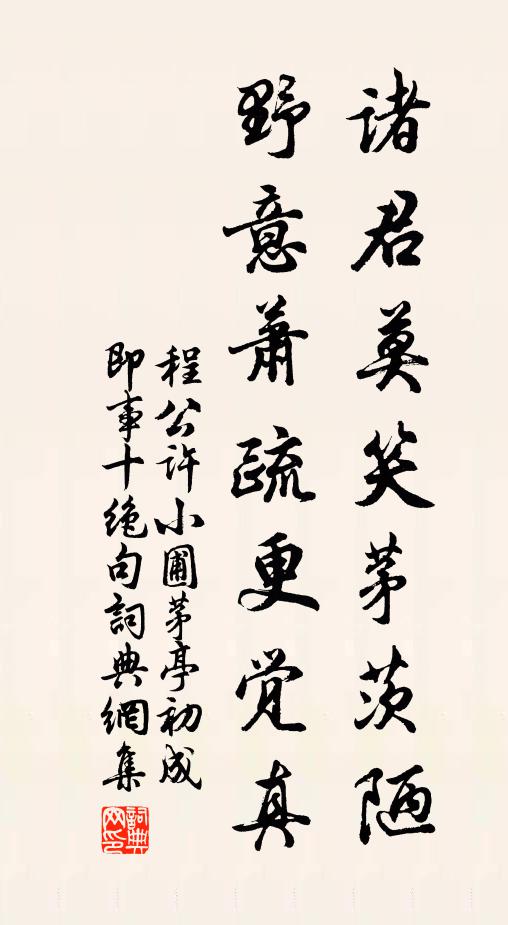 諸君莫笑茅茨陋
野意蕭疏更覺真
程公許小圃茅亭初成
即事十絶句詞典網集
詞典網印